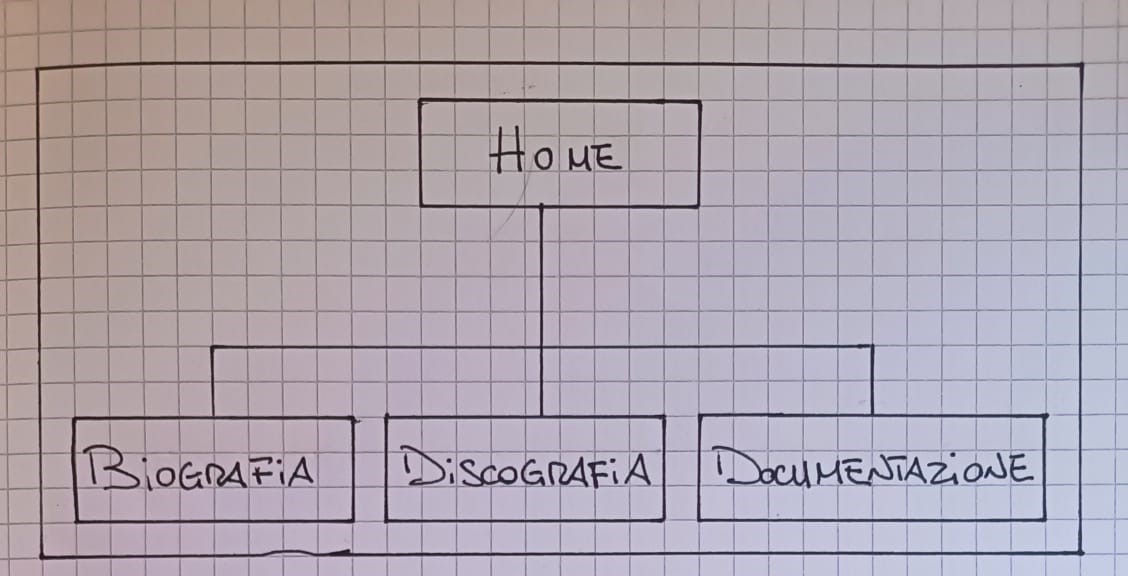 HOME
BiOGRAFiA
DiSCOGRAFiA
DOCUMENTAZiONE